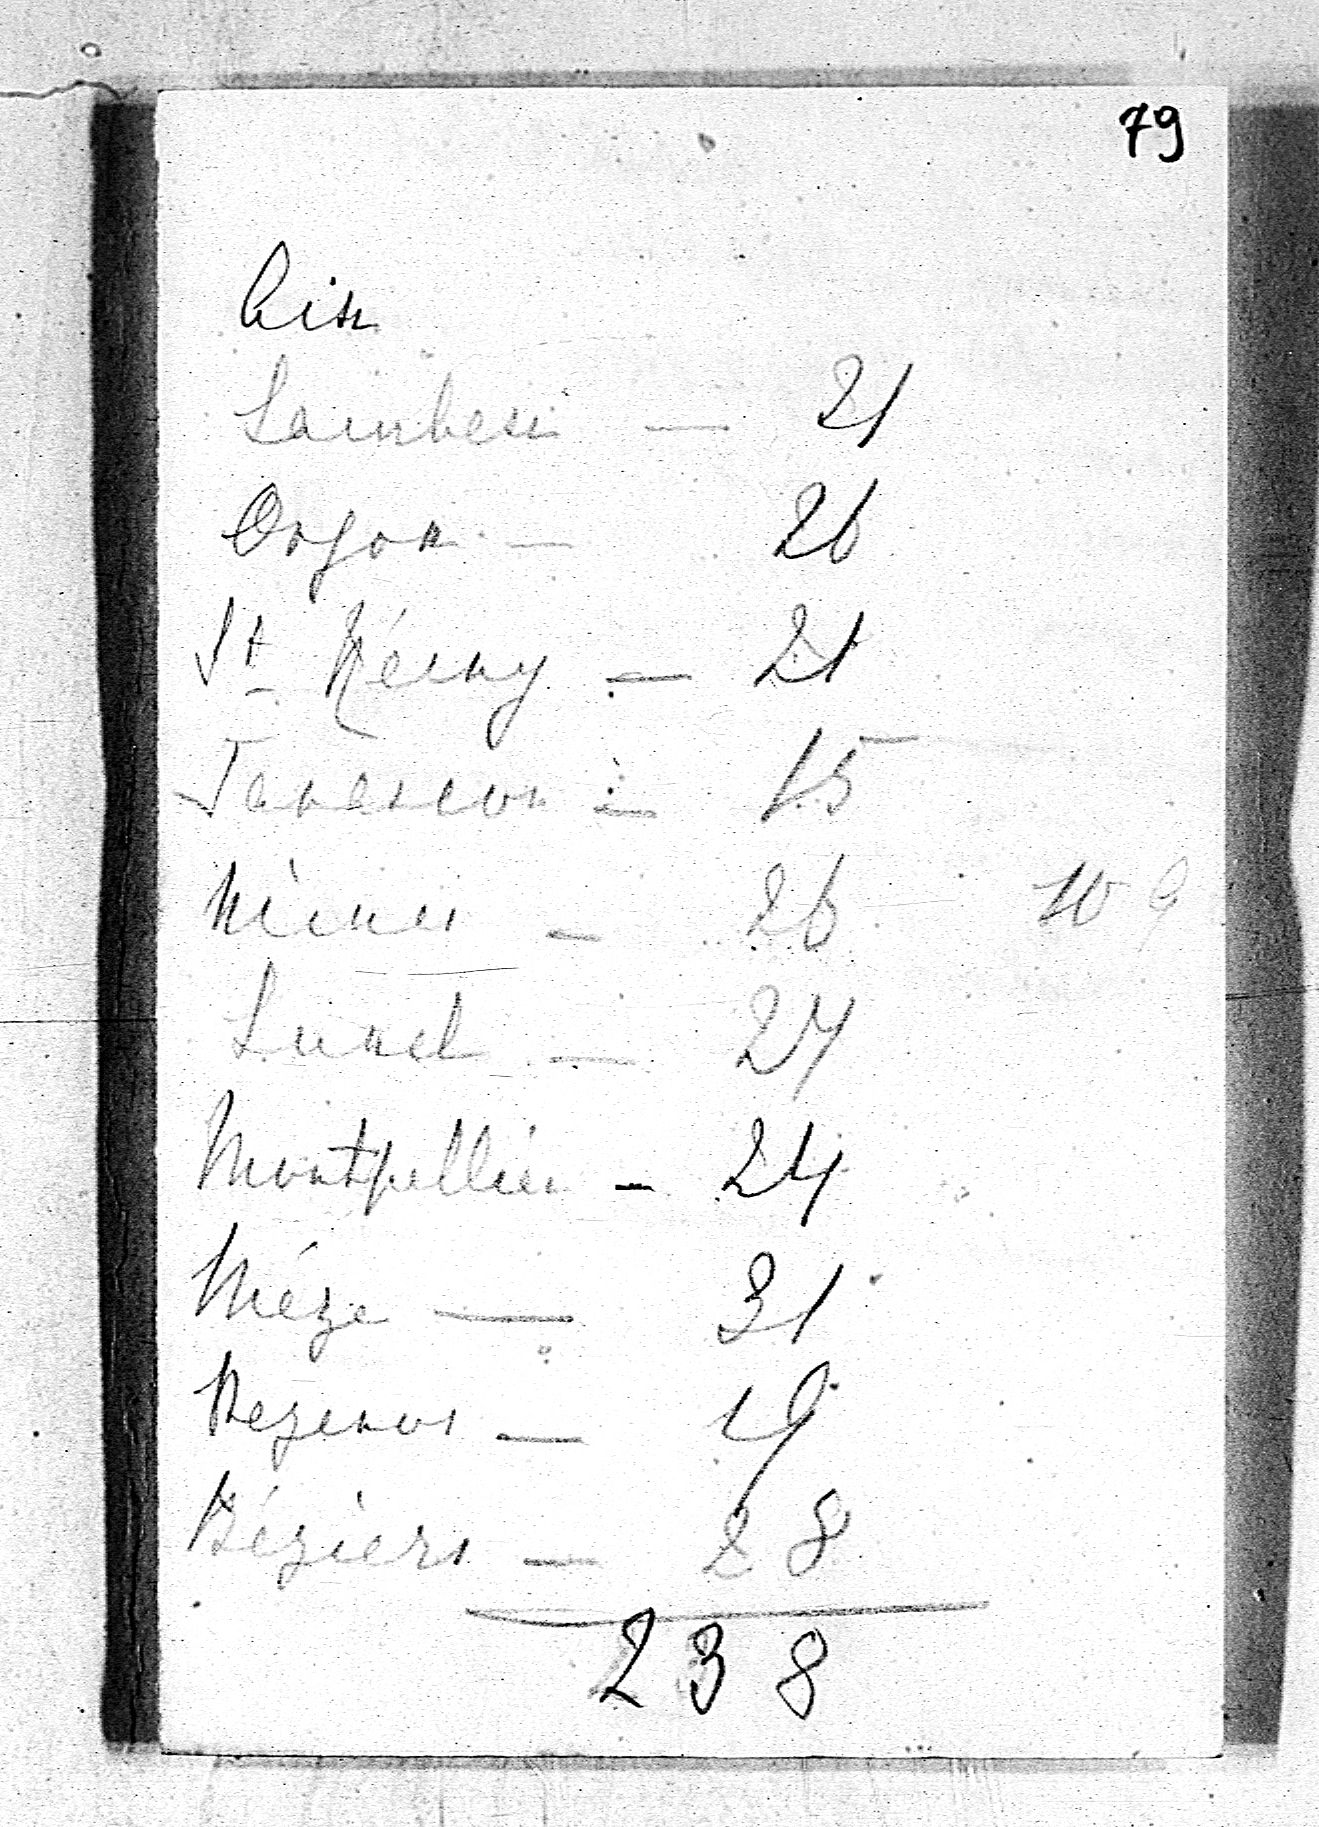 79
Aix
Lambesc — 21
Orgon — 26
St Rémy — 21
Tarascon — 15
Nîmes — 26 109
Lunel — 27
Montpellier — 24
Méze — 31
Pezenas — 19
Béziers — 28
238